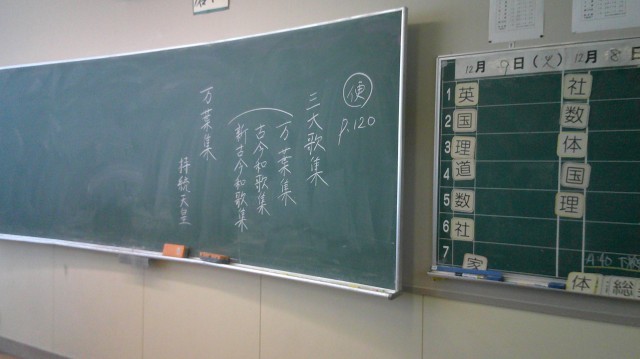 便
P.120
三大歌集
万葉集
古今和歌集
新古今和歌集
万葉集
持統天皇
12月 日(火) 12月 日
1 英 社
2 国 数
3 理 体
4 道 国
5 数 理
6 社
7 家 体 総